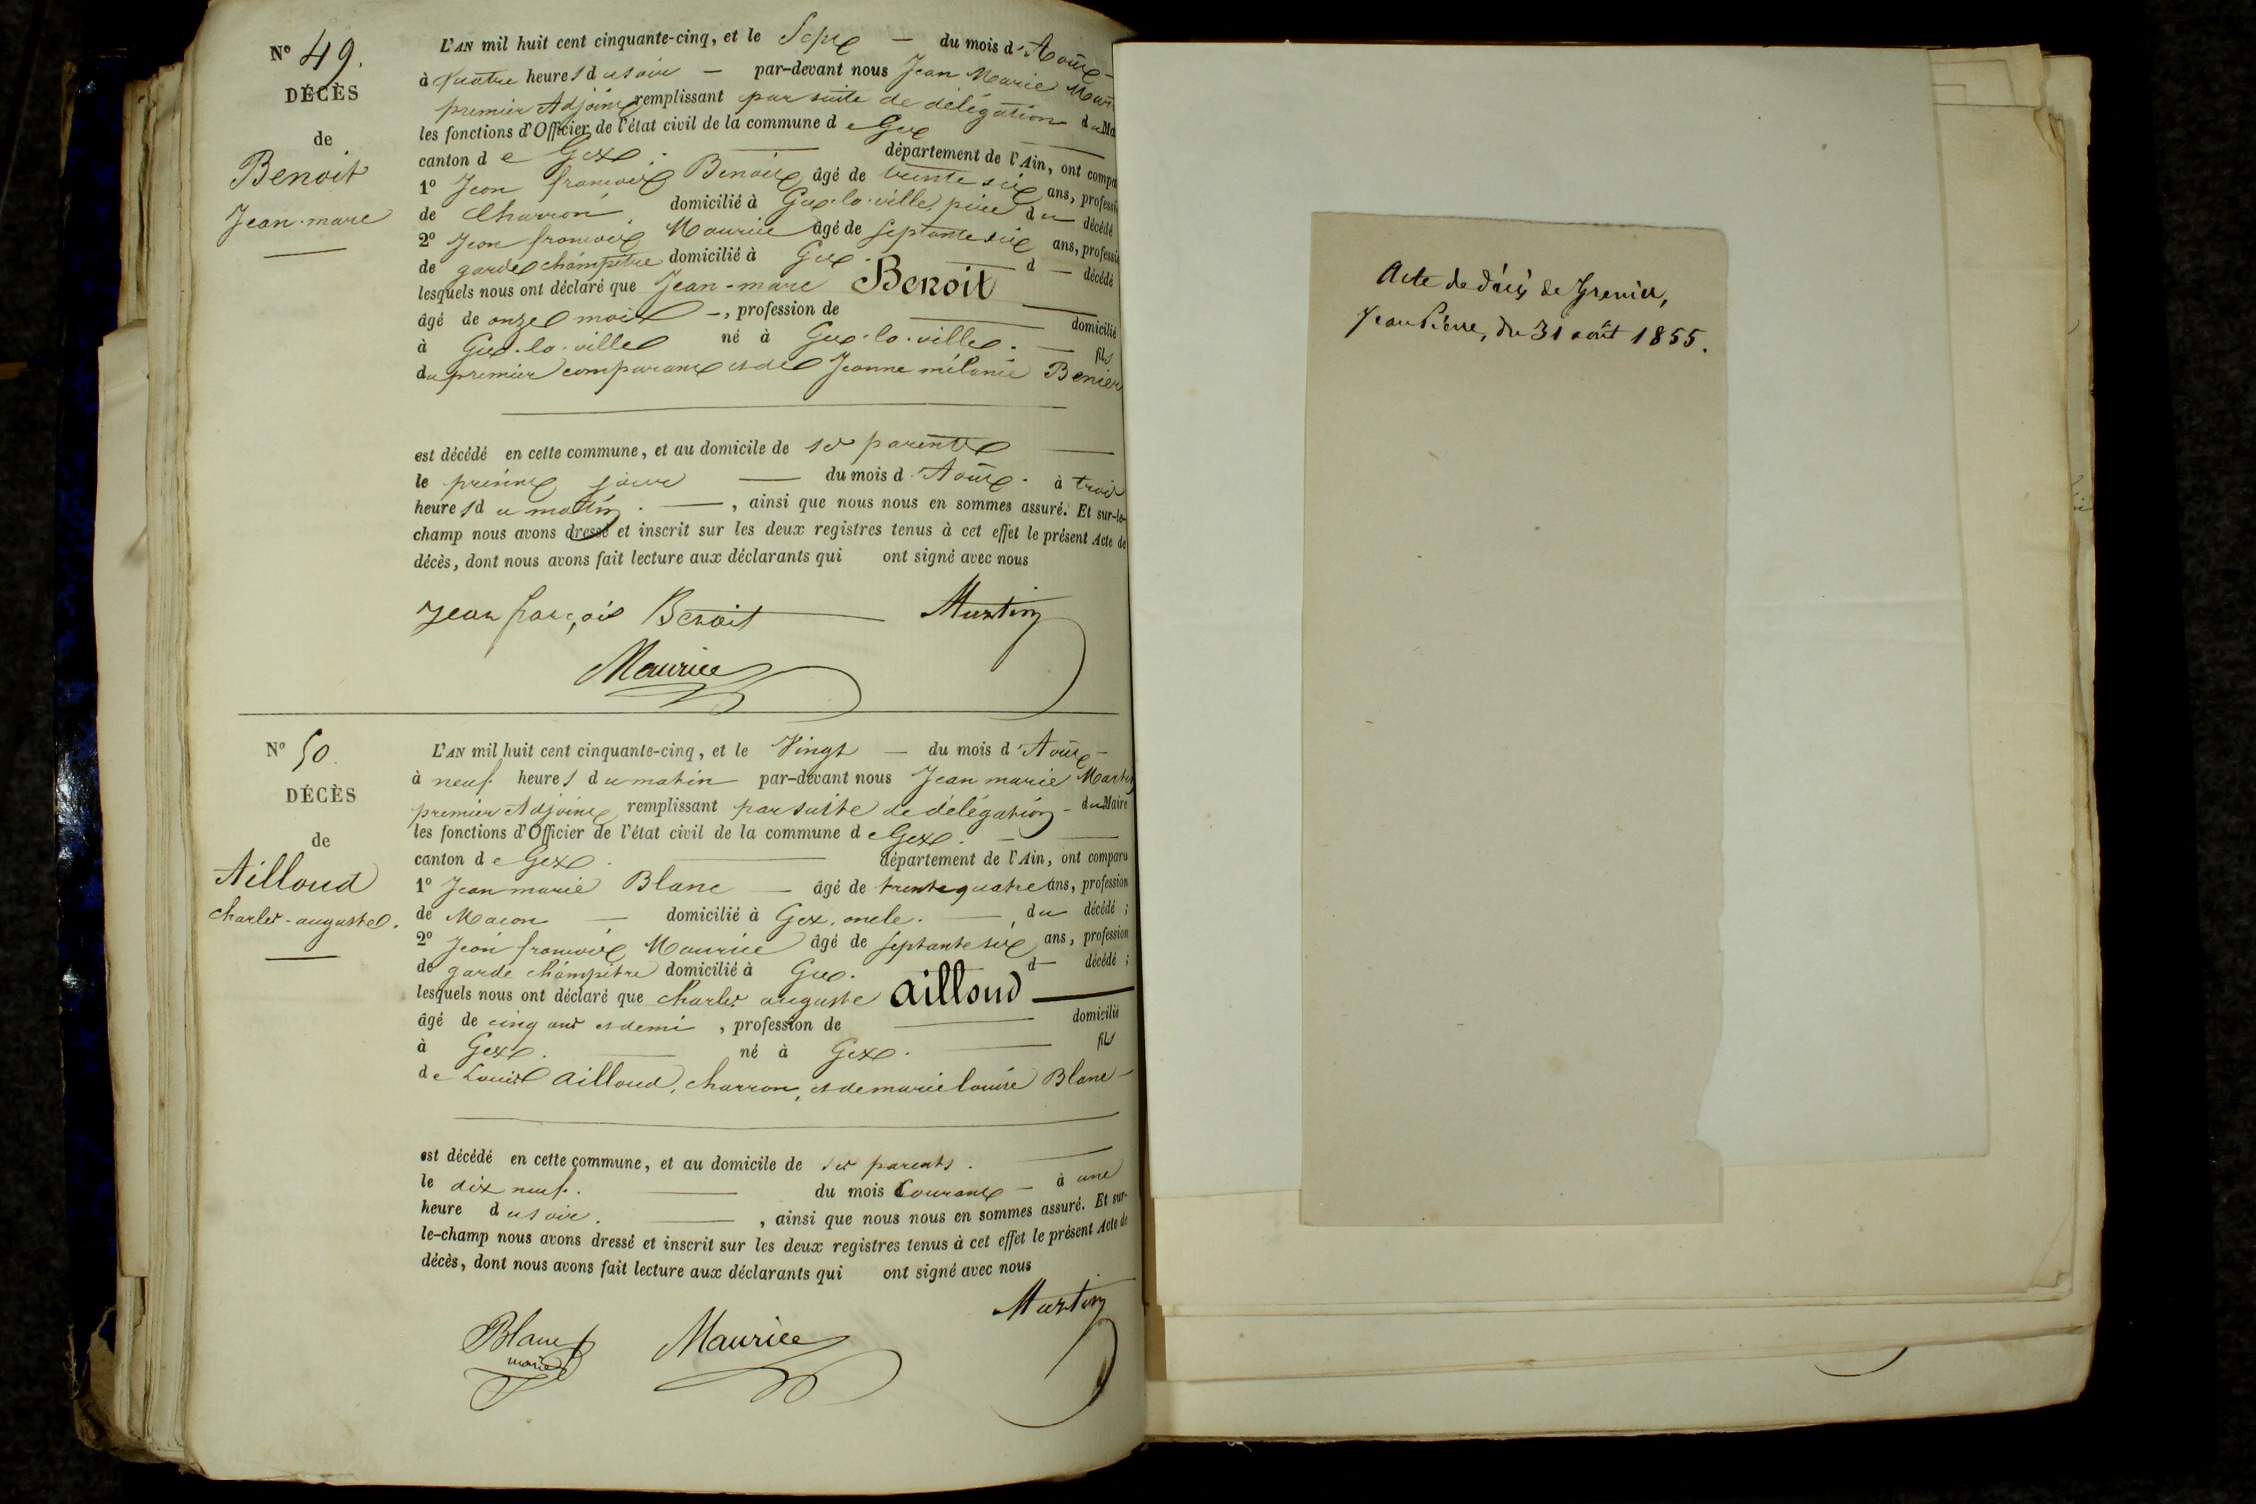 N° 49.
DÉCÈS
de
Benoit
Jean-marc
L'AN mil huit cent cinquante-cinq, et le Sept — du mois d'Août —
à quatre heures du soir — par-devant nous Jean Marie
premier Adjoint remplissant par suite de délégation du
les fonctions d'Officier de l'état civil de la commune de Gex
canton de Gex. — département de l'Ain, ont
1° Jean françois Benoit âgé de trente six ans,
de Charron, domicilié à Gex-la-ville, père du décédé
2° Jean françois Maurice âgé de septante six ans,
de garde champêtre domicilié à Gex. — d — décédé
lesquels nous ont déclaré que Jean-marc Benoit
âgé de onze mois —, profession de — domicilié
à Gex-la-ville né à Gex-la-ville. — fils
du premier comparant et de Jeanne mélanie Benier
est décédé en cette commune, et au domicile de ses parents
le présent jour — du mois d'Août. à trois
heures du matin. —, ainsi que nous nous en sommes assuré. Et sur-le-
champ nous avons dressé et inscrit sur les deux registres tenus à cet effet le présent Acte de
décès, dont nous avons fait lecture aux déclarants qui ont signé avec nous
Jean françois Benoit Martin
Maurice
N° 50.
DÉCÈS
de
Ailloud
charles-auguste.
L'AN mil huit cent cinquante-cinq, et le Vingt — du mois d'Août —
à neuf heures du matin par-devant nous Jean marie Martin
premier Adjoint remplissant par suite de délégation — du Maire
les fonctions d'Officier de l'état civil de la commune de Gex. —
canton de Gex. — département de l'Ain, ont comparu
1° Jean marie Blanc — âgé de trente quatre ans, profession
de Maçon — domicilié à Gex, oncle. — du décédé ;
2° Jean françois Maurice âgé de septante six ans, profession
de garde champêtre domicilié à Gex. d — décédé ;
lesquels nous ont déclaré que charles auguste ailloud —
âgé de cinq ans et demi, profession de — domicilié
à Gex. — né à Gex. — fils
de Louis ailloud, charron, et de marie louise Blanc —
est décédé en cette commune, et au domicile de ses parents. —
le dix neuf. — du mois Courant — à une
heure du soir. —, ainsi que nous nous en sommes assuré. Et sur-
le-champ nous avons dressé et inscrit sur les deux registres tenus à cet effet le présent Acte de
décès, dont nous avons fait lecture aux déclarants qui ont signé avec nous
Martin
Blanc Maurice
marie
Acte de décès de Grenier,
Jean Pierre, du 31 août 1855.